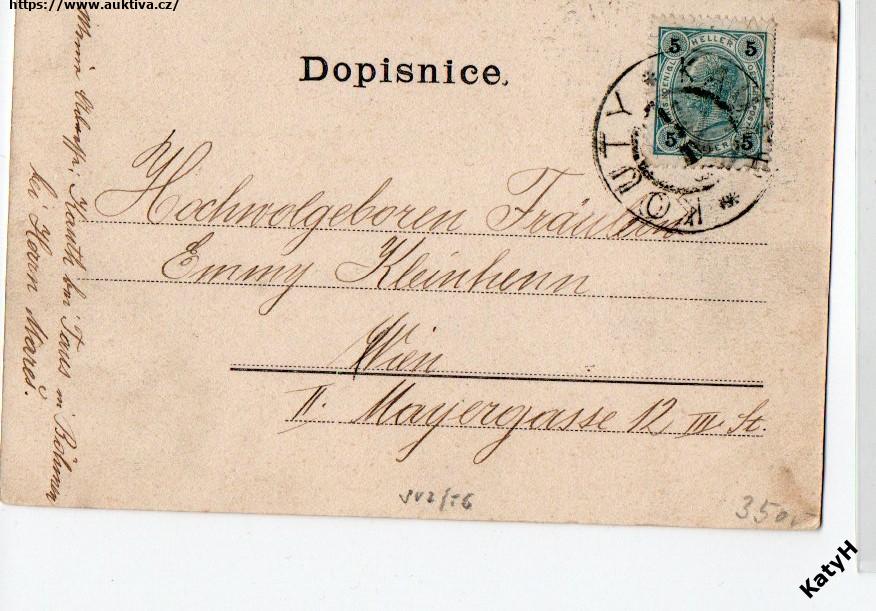 https://www.auktiva.cz/
Dopisnice.
5 HELLER 5
5 5
KOUTY
Hochwolgeboren Fräulein
Emmy Kleinhenn
Wien
II. Mayergasse 12 III. St.
Kauth bei Taus in Böhmen
bei Herrn Mareš.
350,-
KatyH